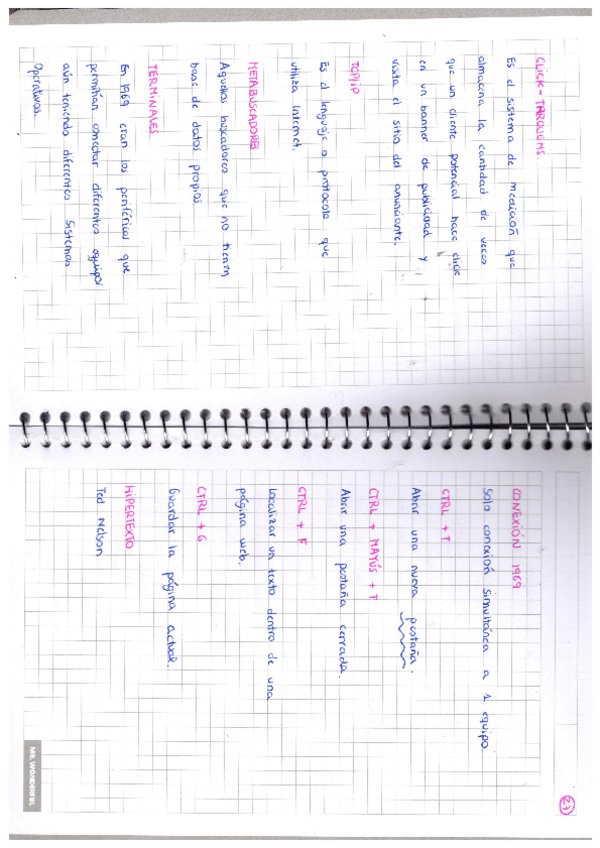 CLICK-THROUGHS
Es el sistema de medición que
almacena la cantidad de veces
que un cliente potencial hace click
en un banner de publicidad y
visita el sitio del anunciante.
TCP/IP
Es el lenguaje o protocolo que
utiliza Internet.
METABUSCADORES
Aquellos buscadores que no tienen
base de datos propios
TERMINALES
En 1969 eran los periféricos que
permitían conectar diferentes equipos
aún teniendo diferentes Sistemas
Operativos.
27
CONEXIÓN 1969
Solo conexión simultánea a 1 equipo.
CTRL + T
Abrir una nueva pestaña.
CTRL + MAYÚS + T
Abrir una pestaña cerrada.
CTRL + F
Localizar un texto dentro de una
página web.
CTRL + G
Guardar la página actual.
HIPERTEXTO
Ted Nelson
MR. WONDERFUL